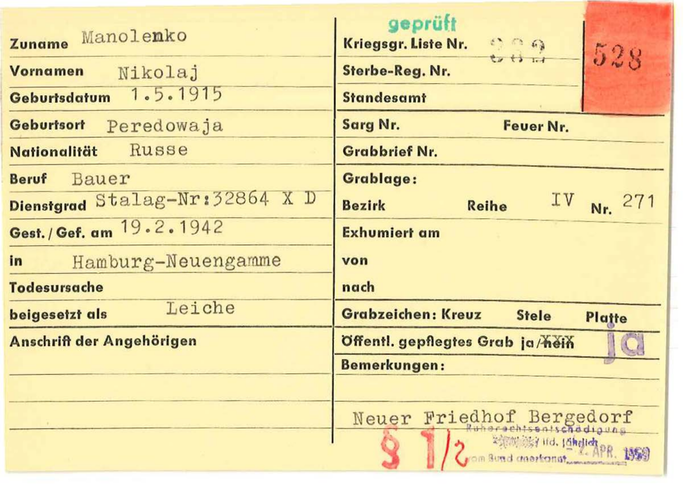 geprüft
528
Zuname Manolenko
Vornamen Nikolaj
Geburtsdatum 1.5.1915
Geburtsort Peredowaja
Nationalität Russe
Beruf Bauer
Dienstgrad Stalag-Nr:32864 X D
Gest./Gef. am 19.2.1942
in Hamburg-Neuengamme
Todesursache
beigesetzt als Leiche
Anschrift der Angehörigen
Kriegsgr. Liste Nr. 382
Sterbe-Reg. Nr.
Standesamt
Sarg Nr. Feuer Nr.
Grabbrief Nr.
Grablage:
Bezirk Reihe IV Nr. 271
Exhumiert am
von
nach
Grabzeichen: Kreuz Stele Platte
Öffentl. gepflegtes Grab ja/nein ja
Bemerkungen:
Neuer Friedhof Bergedorf
Ruherechtsentschädigung
§ 1/2 lfd. jährlich
vom Bund anerkannt APR.